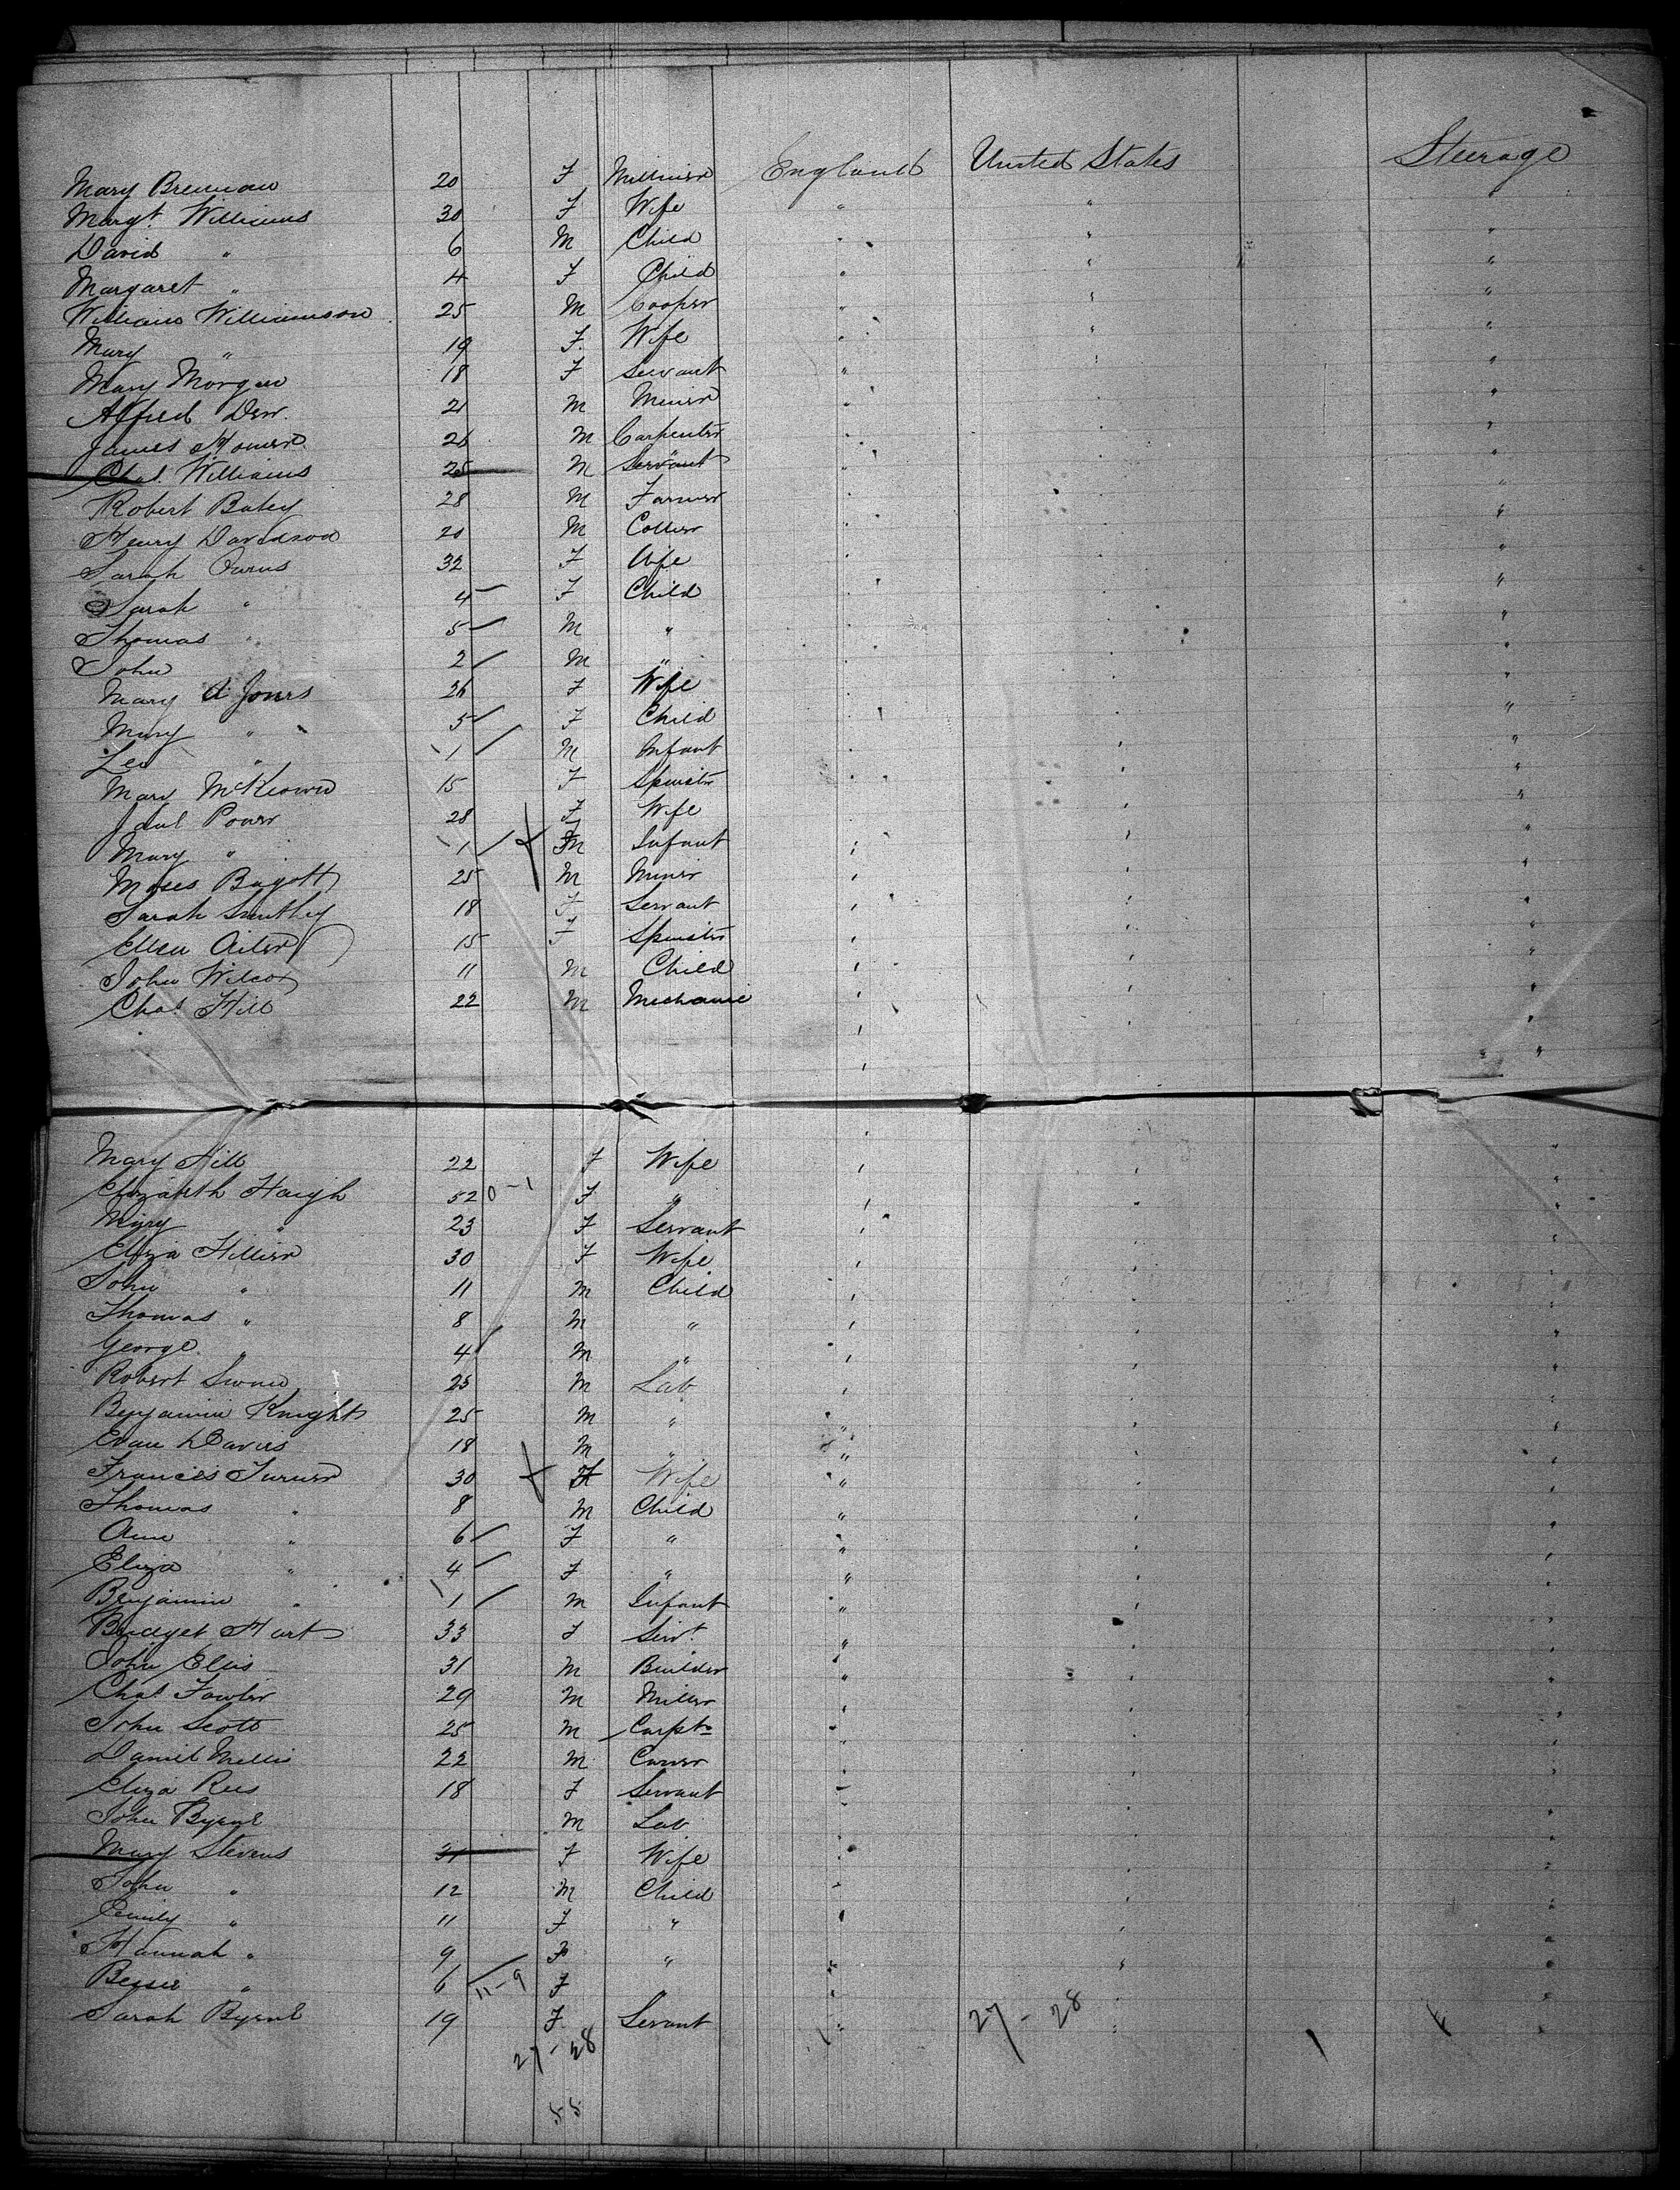 Mary Brennan 20 F Milliner England United States Steerage
Margt. Williams 30 F Wife " " "
David " 6 M Child " " "
Margaret " 4 F Child " " "
William Williamson 25 M Cooper " " "
Mary " 19 F Wife " " "
Mary Morgan 18 F Servant " " "
Alfred Dew 21 M Miner " " "
James Homer 26 M Carpenter " " "
Chas. Williams 25 M Servant " " "
Robert Batey 28 M Farmer " " "
Henry Davidson 20 M Collier " " "
Sarah 32 F Wife " " "
Sarah " 4 F Child " " "
Thomas " 5 M " " " "
John 2 M " " " "
Mary A Jones 26 F Wife " " "
Mary " 5 F Child " " "
" 1 M Infant " " "
Mary McKeown 15 F Spinster " " "
Power 28 F Wife " " "
Mary " 1 F Infant " " "
Moses Bagott 25 M Miner " " "
Sarah 18 F Servant " " "
Ellen 15 F Spinster " " "
John Wilcox 11 M Child " " "
Chas. Hill 22 M Mechanic " " "
Mary Hill 22 F Wife " " "
Elizabeth Haigh 52 0-1 F " " " "
Mary " 23 F Servant " " "
Eliza Hillier 30 F Wife " " "
John " 11 M Child " " "
Thomas " 8 M " " " "
George " 4 M " " " "
Robert 25 M Lab " " "
Benjamin Knight 25 M " " " "
Evan Davies 18 M " " " "
Frances Turner 30 F Wife " " "
Thomas " 8 M Child " " "
Ann " 6 F " " " "
Eliza " 4 F " " " "
Benjamin " 1 M Infant " " "
Bridget Hart 33 F Servt " " "
John Ellis 31 M Builder " " "
Chas. Fowler 29 M Miller " " "
John Scott 25 M Carptr " " "
Daniel Mellis 22 M " " "
Eliza Rees 18 F Servant " " "
John Byrne M Lab " " "
Mary Stevens 31 F Wife " " "
John " 12 M Child " " "
Emily " 11 F " " " "
Hannah " 9 F " " " "
Bessie " 6 11-9 F " " "
Sarah Byrne 19 F Servant " " "
27-28 27-28
55